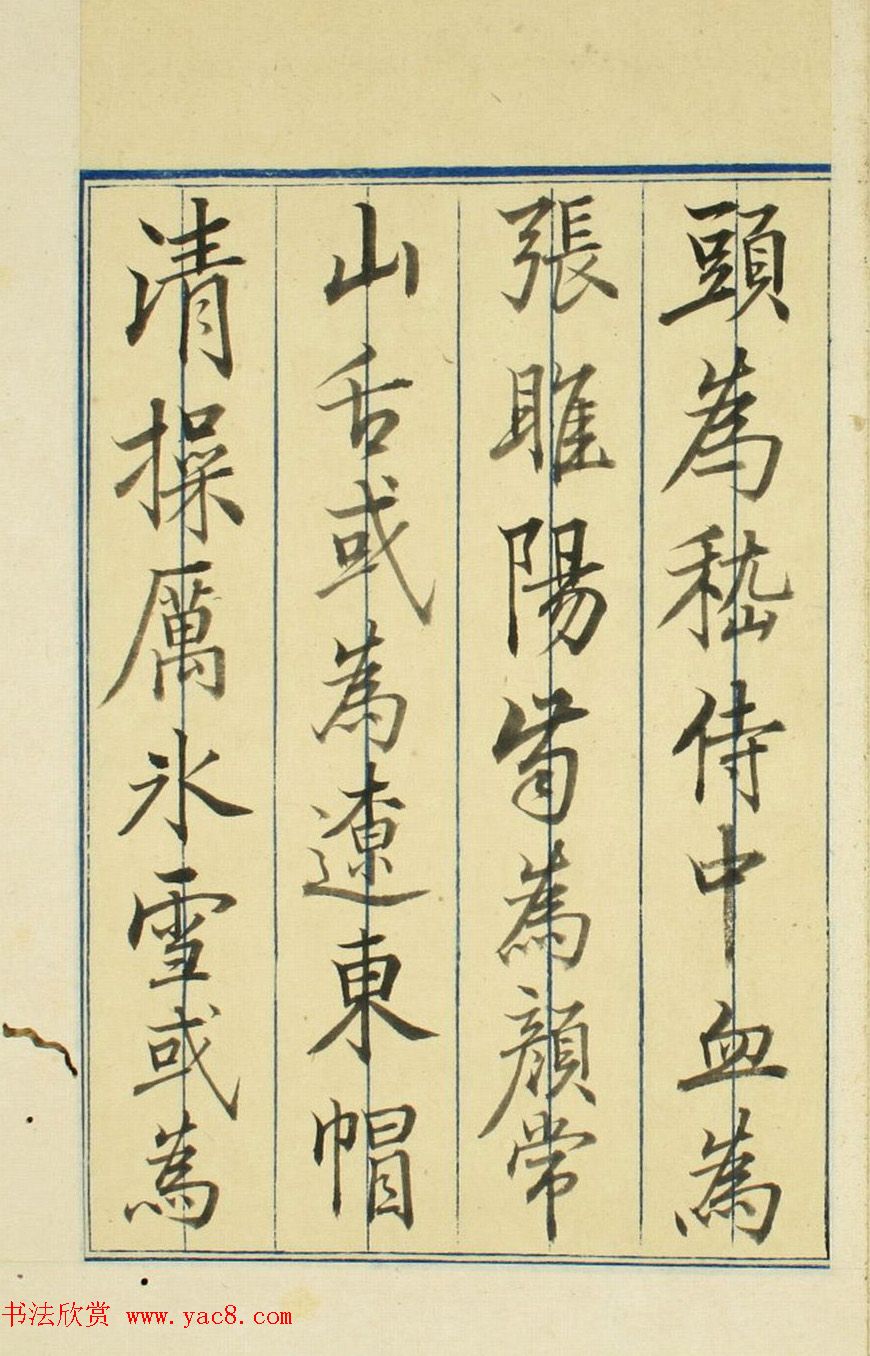 頭為嵇侍中血為
張睢陽齒為顏常
山舌或為遼東帽
清操厲氷雪或為
书法欣赏 www.yac8.com